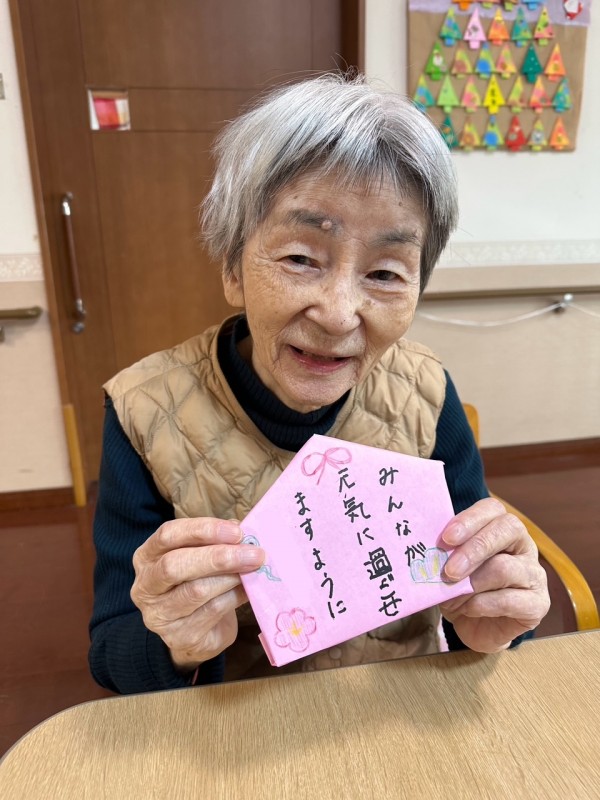 みんなが
元気に過ごせ
ますように